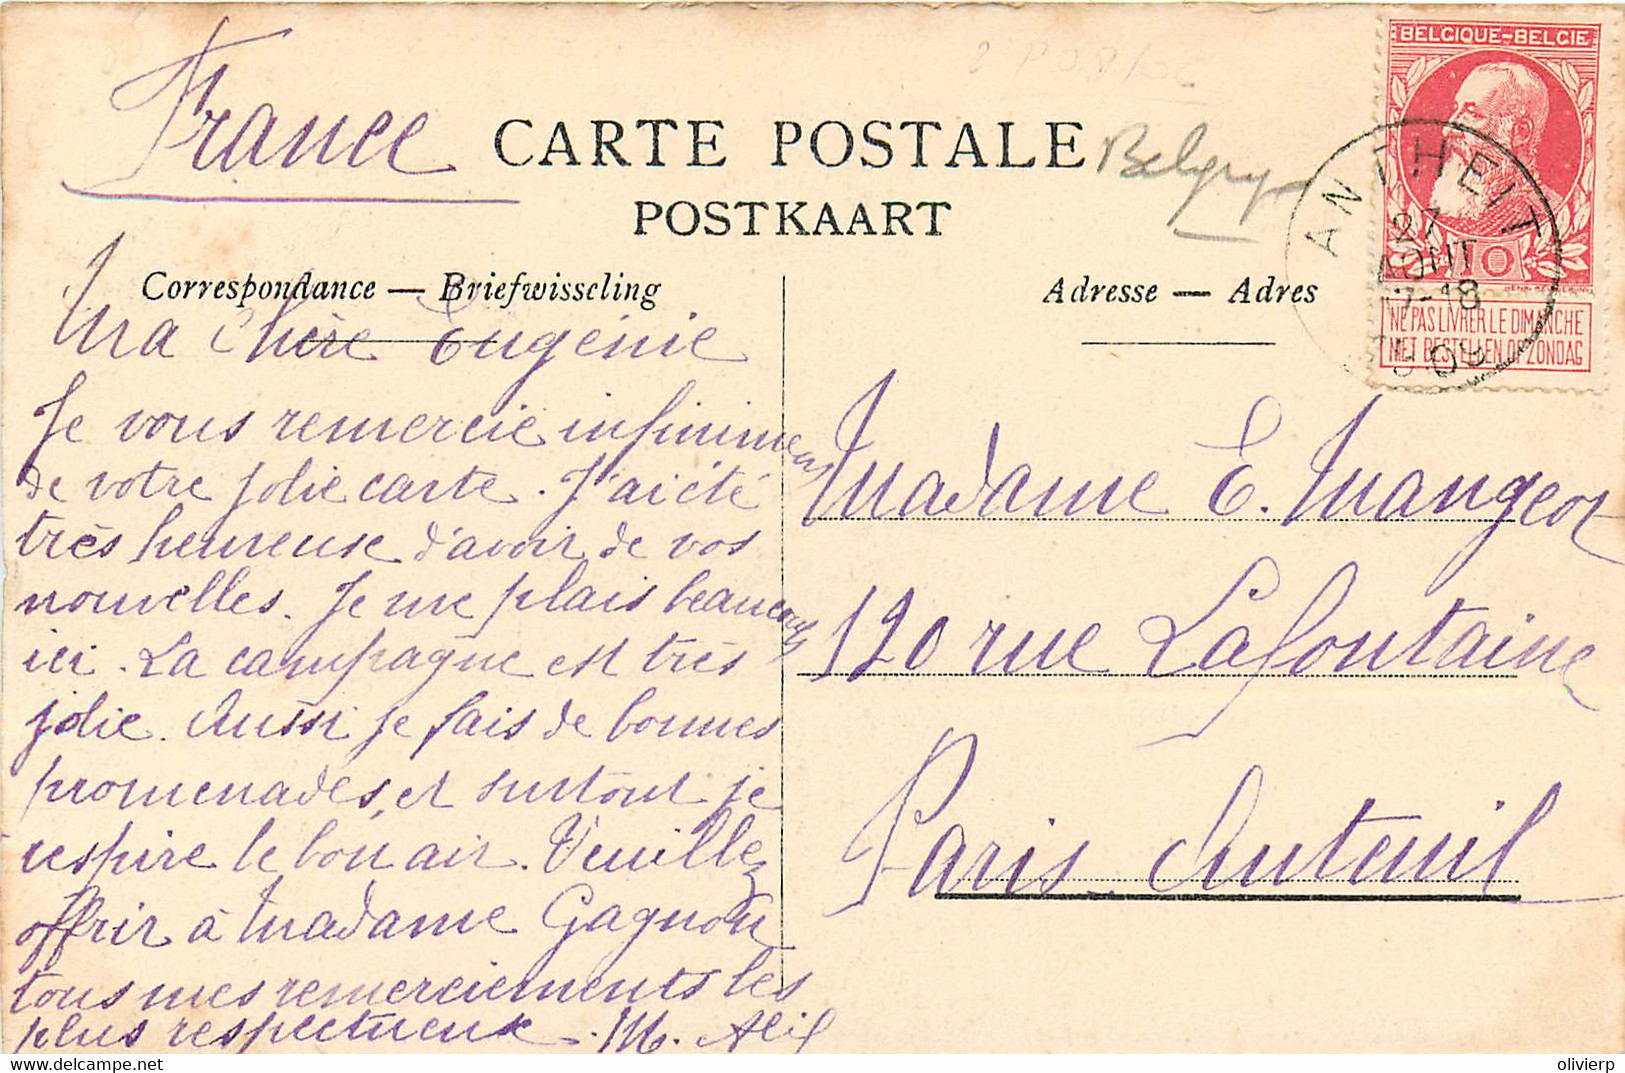 France
CARTE POSTALE
POSTKAART
BELGIQUE-BELGIE
ANTHEIT
27
AOUT
17-18
10
NE PAS LIVRER LE DIMANCHE
NIET BESTELLEN OP ZONDAG
Correspondance — Briefwisseling
Ma Chère Eugénie
Je vous remercie infiniment
de votre jolie carte. J'ai été
très heureuse d'avoir de vos
nouvelles. Je me plais beaucoup
ici. La campagne est très
jolie. Aussi je fais de bonnes
promenades, et surtout je
respire le bon air. Veuillez
offrir à Madame Gagnon
tous mes remerciements les
plus respectueux. M.
Adresse — Adres
Madame E. Mangeot
120 rue Lafontaine
Paris-Auteuil
olivierp